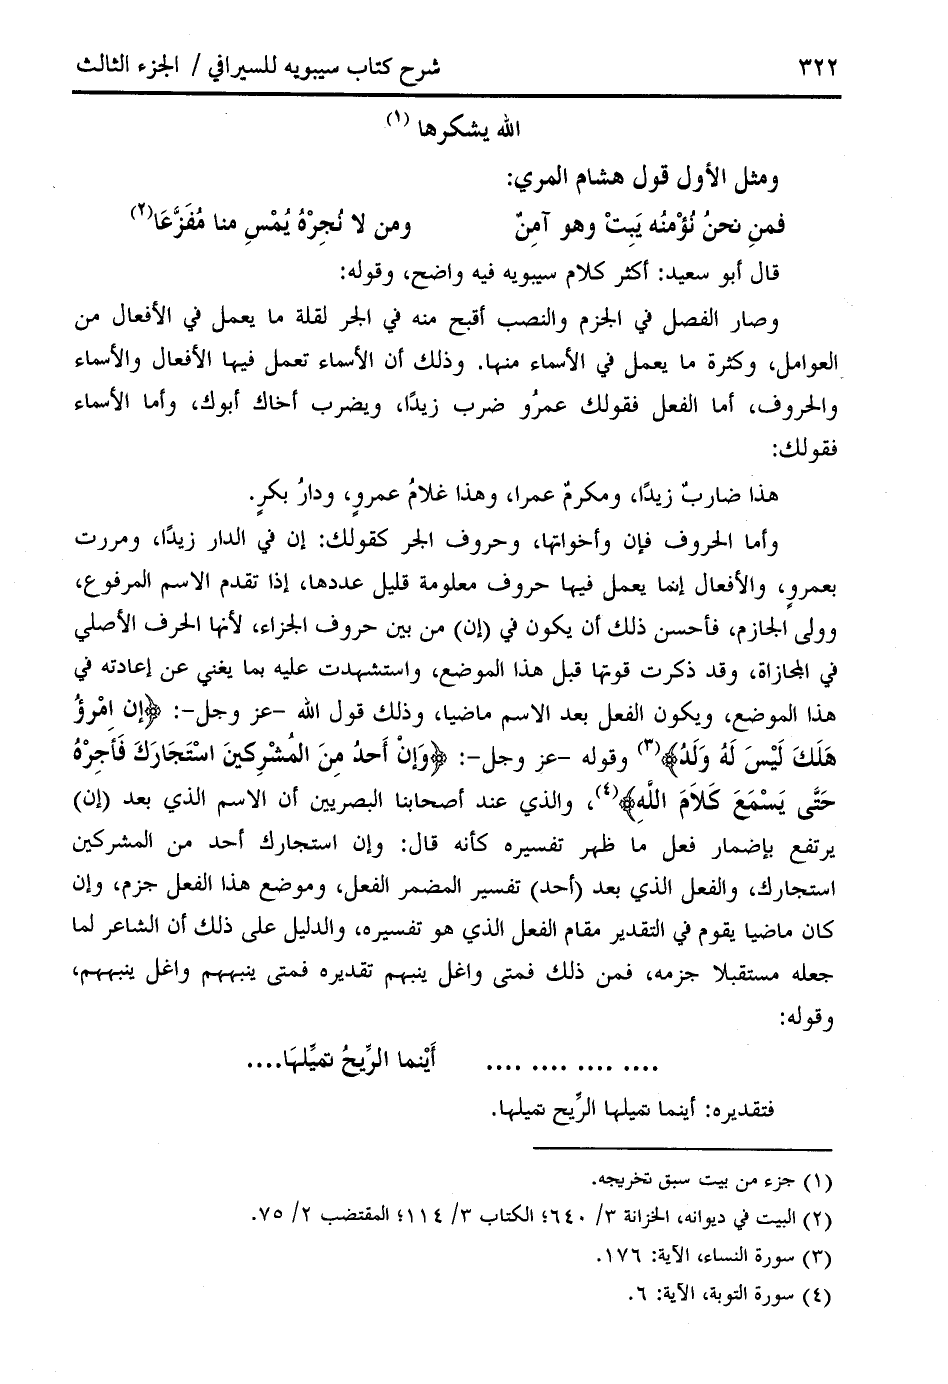 ٣٢٢ شرح كتاب سيبويه للسيرافي / الجزء الثالث
الله يشكرها (١)
ومثل الأول قول هشام المري:
فمنِ نحنُ نُؤْمنُه يَبِتْ وهو آمنٌ ومن لا نُجِرْهُ يُمْسِ منا مُفَزَّعَا(٢)
قال أبو سعيد: أكثر كلام سيبويه فيه واضح، وقوله:
وصار الفصل في الجزم والنصب أقبح منه في الجر لقلة ما يعمل في الأفعال من
العوامل، وكثرة ما يعمل في الأسماء منها. وذلك أن الأسماء تعمل فيها الأفعال والأسماء
والحروف، أما الفعل فقولك عمرُو ضرب زيدًا، ويضرب أخاك أبوك، وأما الأسماء
فقولك:
هذا ضاربٌ زيدًا، ومكرمٌ عمرا، وهذا غلامُ عمروٍ، ودارُ بكرٍ.
وأما الحروف فإن وأخواتها، وحروف الجر كقولك: إن في الدار زيدًا، ومررت
بعمروٍ، والأفعال إنما يعمل فيها حروف معلومة قليل عددها، إذا تقدم الاسم المرفوع،
وولى الجازم، فأحسن ذلك أن يكون في (إن) من بين حروف الجزاء، لأنها الحرف الأصلي
في المجازاة، وقد ذكرت قوتها قبل هذا الموضع، واستشهدت عليه بما يغني عن إعادته في
هذا الموضع، ويكون الفعل بعد الاسم ماضيا، وذلك قول الله -عز وجل-: ﴿إن امْرؤٌ
هَلَكَ لَيْسَ لَهُ وَلَدٌ﴾(٣) وقوله -عز وجل-: ﴿وَإِنْ أَحدٌ مِنَ الْمُشْرِكينَ اسْتَجَارَكَ فَأَجِرْهُ
حَتَّى يَسْمَعَ كَلامَ اللَّهِ﴾(٤)، والذي عند أصحابنا البصريين أن الاسم الذي بعد (إن)
يرتفع بإضمار فعل ما ظهر تفسيره كأنه قال: وإن استجارك أحد من المشركين
استجارك، والفعل الذي بعد (أحد) تفسير المضمر الفعل، وموضع هذا الفعل جزم، وإن
كان ماضيا يقوم في التقدير مقام الفعل الذي هو تفسيره، والدليل على ذلك أن الشاعر لما
جعله مستقبلا جزمه، فمن ذلك فمتى واغل ينبهم تقديره فمتى ينبههم واغل ينبههم،
وقوله:
.... .... .... .... أَيْنما الرِّيحُ تميِّلهَا....
فتقديره: أينما تميلها الرِّيح تميلها.
(١) جزء من بيت سبق تخريجه.
(٢) البيت في ديوانه، الخزانة ٣/ ٦٤٠؛ الكتاب ٣/ ١١٤؛ المقتضب ٢/ ٧٥.
(٣) سورة النساء، الآية: ١٧٦.
(٤) سورة التوبة، الآية: ٦.